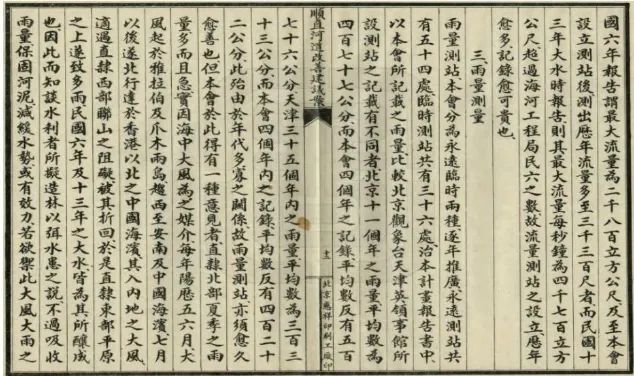 國六年報告謂最大流量為二千八百立方公尺及至本會
設立測站後測出歷年流量多至三千三百尺者而民國十
三年大水時報告則其最大流量每秒鐘為四千七百立方
公尺超過海河工程局民六之數故流量測站之設立歷年
愈多記錄愈可貴也
三、雨量測量
雨量測站本會分為永遠臨時兩種逐年推廣永遠測站共
有五十四處臨時測站共有三十六處治本計畫報告書中
以本會所記載之雨量比較北京觀象台天津英領事館所
設測站之記載有不同者北京十一個年之雨量平均數為
四百七十七公分而本會四個年之記錄平均數反有五百
順直河道改善建議案
北京慈祥印刷工廠印
七十六公分天津三十五個年內之雨量平均數為三百三
十三公分而本會四個年內之記錄平均數反有四百二十
二公分此殆由於年代多寡之關係故雨量測站亦須愈久
愈善也但本會於此得有一種意見者直隸北部夏季之雨
量多而且急實因海中大風為之媒介每年陽歷五六月大
風起於雅拉伯及爪木雨島趨西至安南及中國海濱七月
以後遂北行達於香港以北之中國海濱其入內地之大風
適遇直隸西部聯山之阻礙被其折回於是直隸東部平原
之上遂致多雨民國六年及十三年之大水皆為其所釀成
也因此而知談水利者所擬造林以弭水患之說不過吸收
雨量保固河泥減緩水勢或有效力若欲禦此大風大雨之